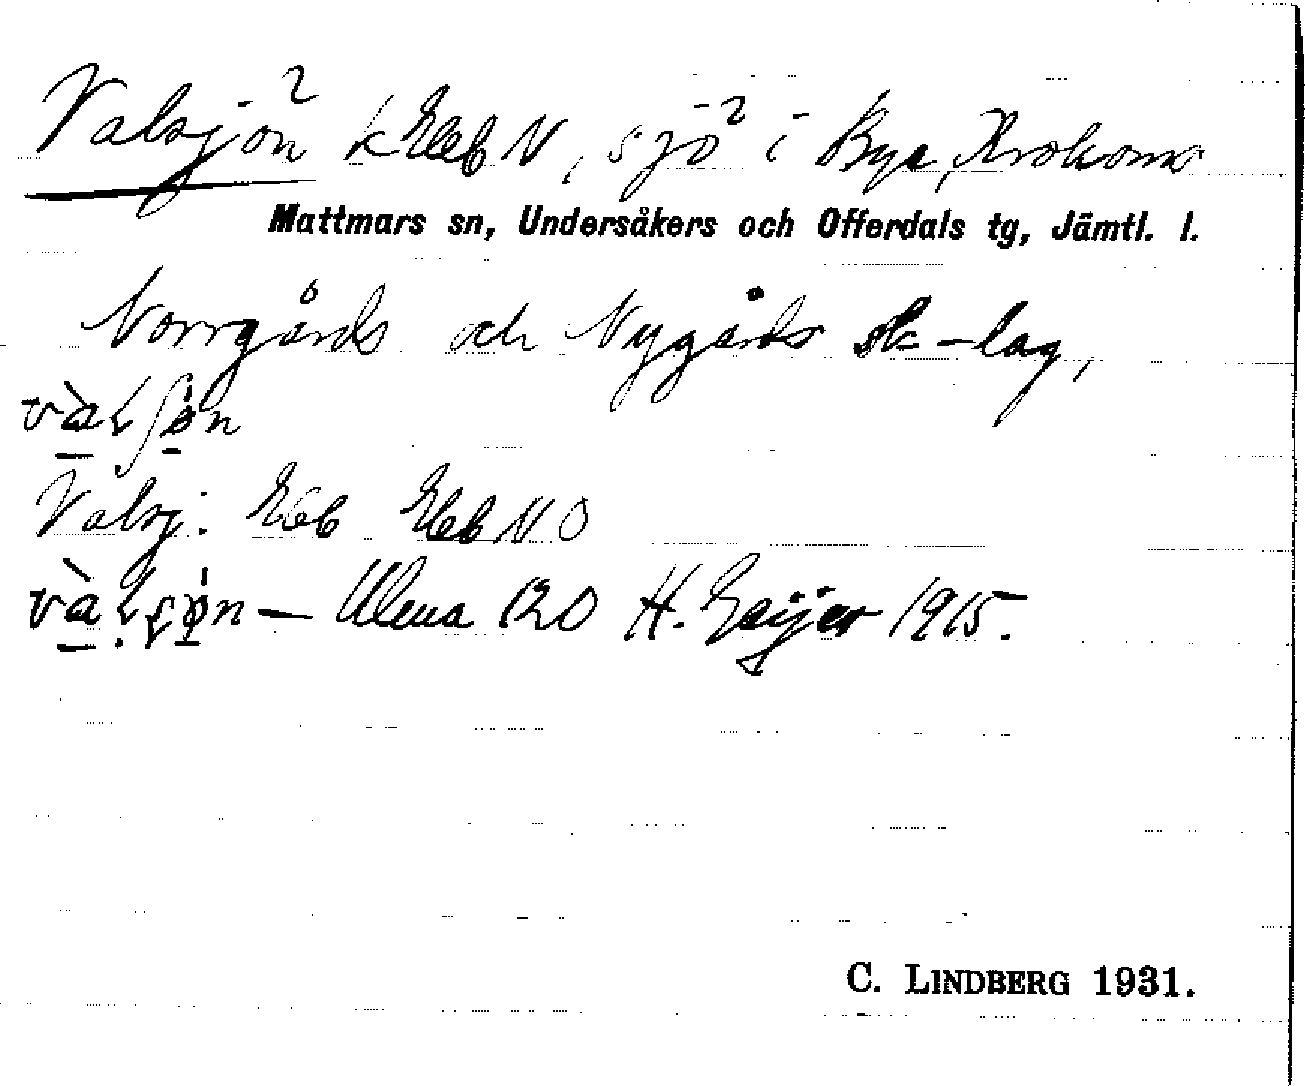 Valsjön k Ekbl N, sjö i Bye, Krokoms
Mattmars sn, Undersåkers och Offerdals tg, Jämtl. l.
Norrgårds och Nygårds sk-lag,
Valsj. Ekbl Ekbl N O
H. Geijer 1915.
C. LINDBERG 1931.